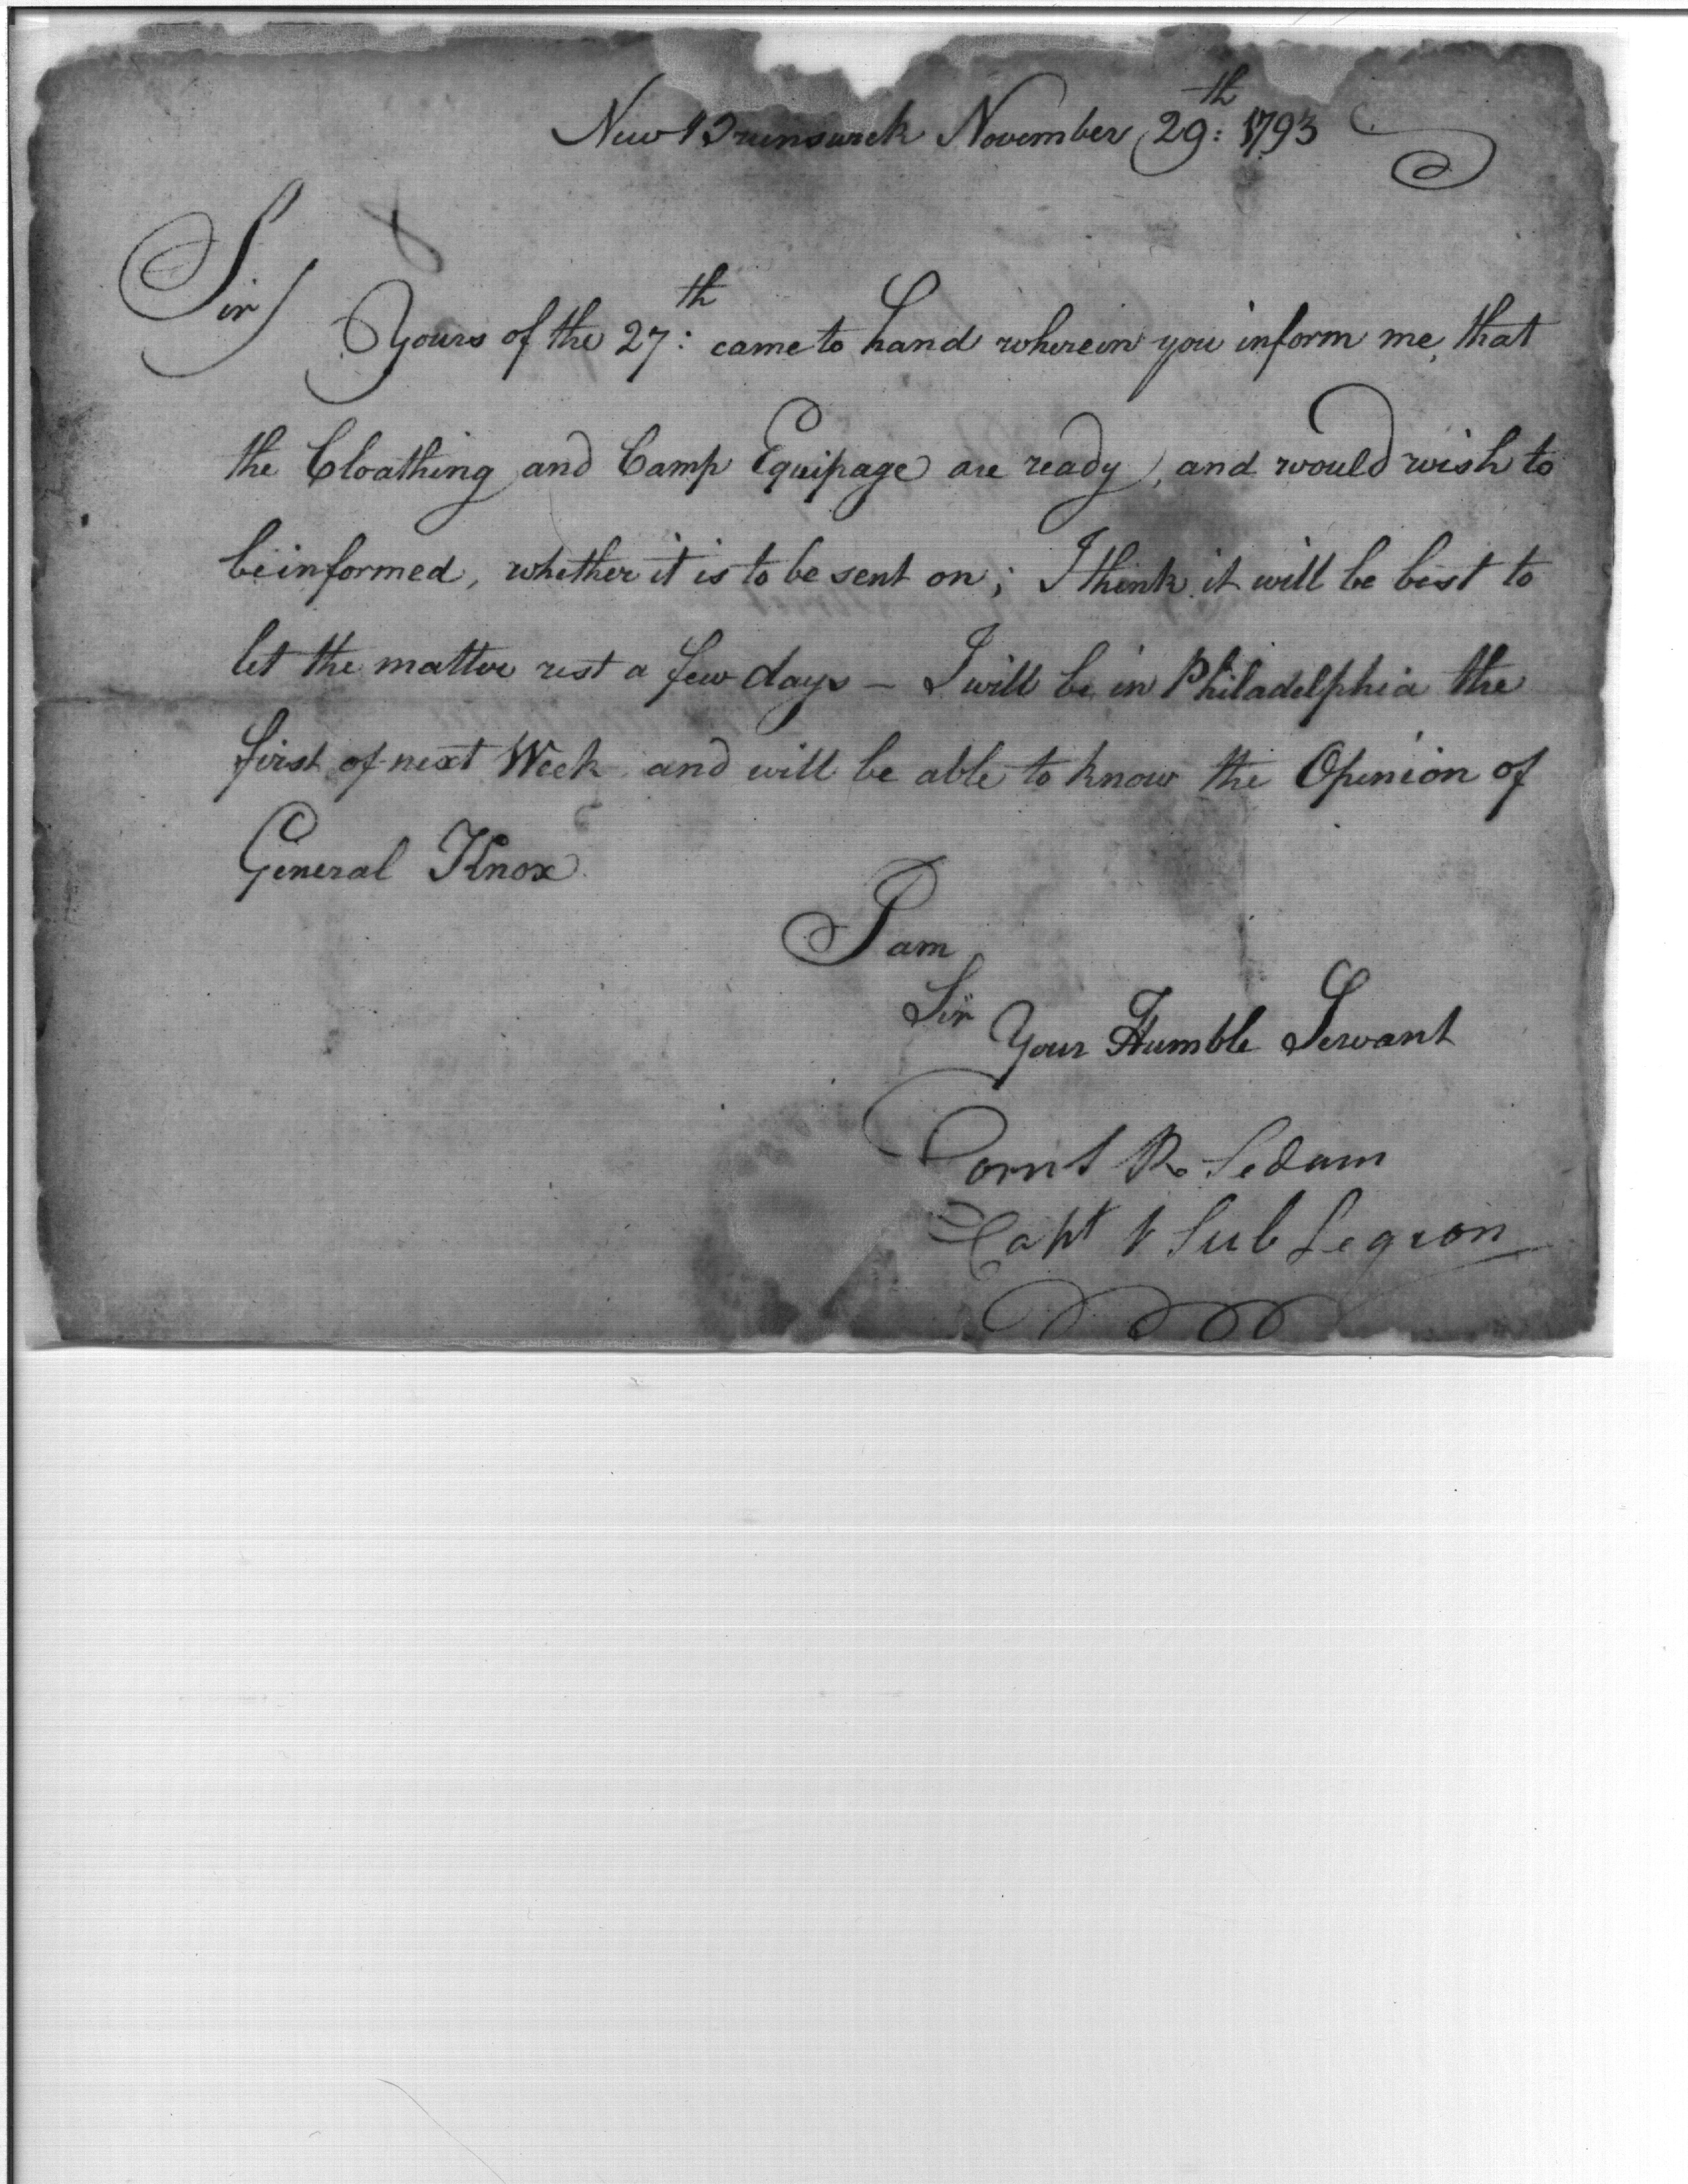 New Brunswick November 29:th 1793
Sir/
Yours of the 27:th came to hand wherein you inform me, that
the Cloathing and Camp Equipage are ready, and would wish to
be informed, whether it is to be sent on; I think it will be best to
let the matter rest a few days – I will be in Philadelphia the
first of next Week and will be able to know the Opinion of
General Knox.
I am
Sir
Your Humble Servant
Cornl R. Sedam
Capt 1 Sub Legion